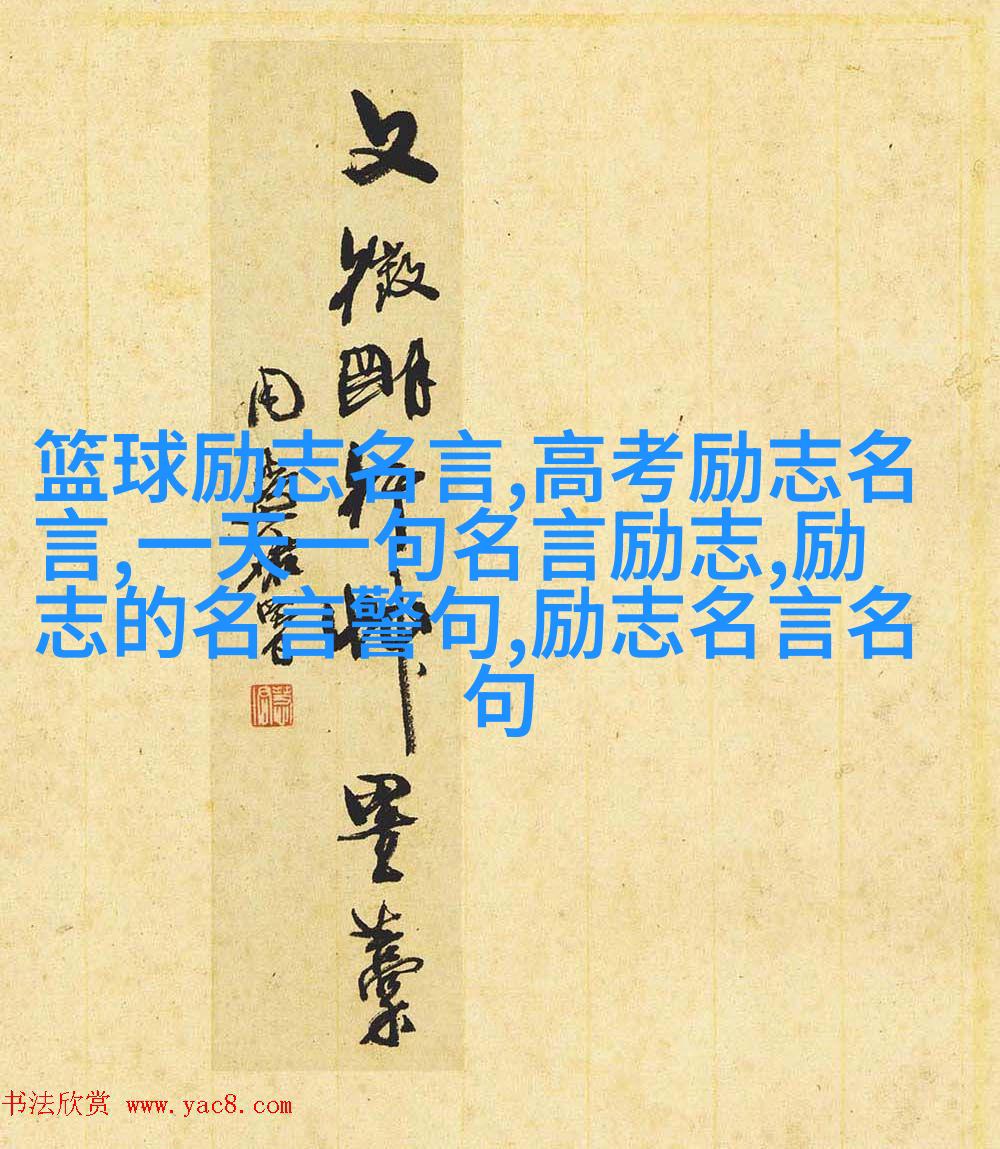 文徵明行書墨藁
周
篮球励志名言,高考励志名
言,一天一句名言励志,励
志的名言警句,励志名言名
句
书法欣赏 www.yac8.com